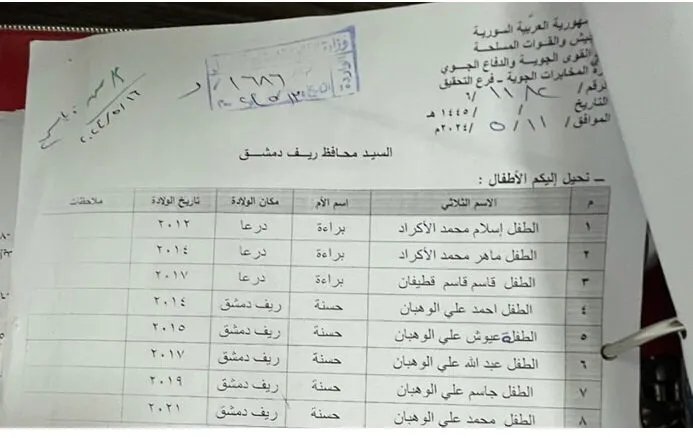 الجمهورية العربية السورية
الجيش والقوات المسلحة
القوى الجوية والدفاع الجوي
إدارة المخابرات الجوية - فرع التحقيق
الرقم / ١١٨٢ /٦
التاريخ / / ١٤٤٥ هـ
الموافق ١١/ ٥ /٢٠٢٤م
وزارة
الواردة
١٦٨٦
٢٠٢٤/٥/١٦
السيد محافظ ريف دمشق
– نحيل إليكم الأطفال :
م الاسم الثلاثي اسم الأم مكان الولادة تاريخ الولادة ملاحظات
١ الطفل إسلام محمد الأكراد براءة درعا ٢٠١٢
٢ الطفل ماهر محمد الأكراد براءة درعا ٢٠١٤
٣ الطفل قاسم قاسم قطيفان براءة درعا ٢٠١٧
٤ الطفل احمد علي الوهبان حسنة ريف دمشق ٢٠١٤
٥ الطفلة عيوش علي الوهبان حسنة ريف دمشق ٢٠١٥
٦ الطفل عبد الله علي الوهبان حسنة ريف دمشق ٢٠١٧
٧ الطفل جاسم علي الوهبان حسنة ريف دمشق ٢٠١٩
٨ الطفل محمد علي الوهبان حسنة ريف دمشق ٢٠٢١